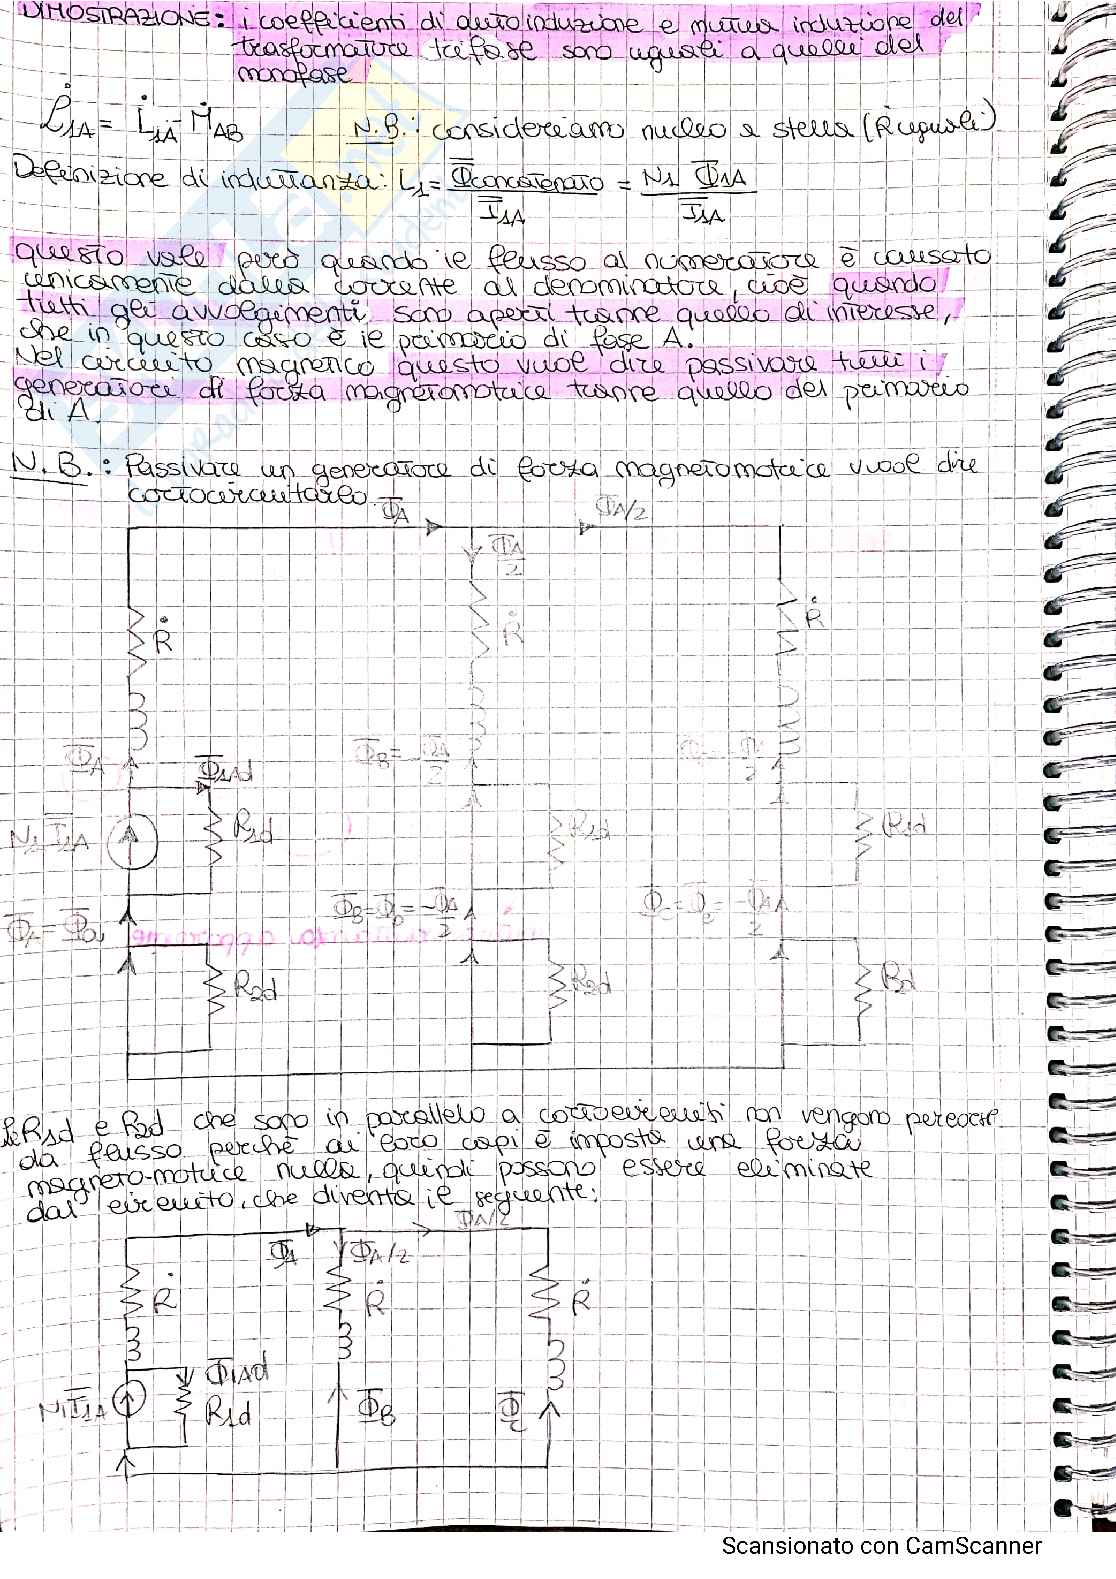 DIMOSTRAZIONE: i coefficienti di autoinduzione e mutua induzione del
trasformatore trifase sono uguali a quelli del
monofase
L̇1A = L̇1A - ṀAB N.B.: consideriamo nucleo a stella (Ṙ uguali)
Definizione di induttanza: L1 = Φ̅concatenato / I̅1A = N1 Φ̅1A / I̅1A
questo vale però quando il flusso al numeratore è causato
unicamente dalla corrente al denominatore, cioè quando
tutti gli avvolgimenti sono aperti tranne quello di interesse,
che in questo caso è il primario di fase A.
Nel circuito magnetico questo vuol dire passivare tutti i
generatori di forza magnetomotrice tranne quello del primario
di A.
N.B.: Passivare un generatore di forza magnetomotrice vuol dire
cortocircuitarlo.
Φ̅A Φ̅A/2
Φ̅A/2
Ṙ Ṙ Ṙ
Φ̅A Φ̅B = -Φ̅A/2
Φ̅1Ad
N1 I̅1A R1d R1d R1d
Φ̅B = Φ̅0 = -Φ̅A/2
R2d R2d R2d
le R1d e R2d che sono in parallelo a cortocircuiti non vengono percorse
da flusso perché ai loro capi è imposta una forza
magneto-motrice nulla, quindi possono essere eliminate
dal circuito, che diventa il seguente:
Φ̅A Φ̅A/2 Φ̅A/2
Ṙ Ṙ Ṙ
Φ̅1Ad
N1 I̅1A R1d Φ̅B Φ̅C
Scansionato con CamScanner